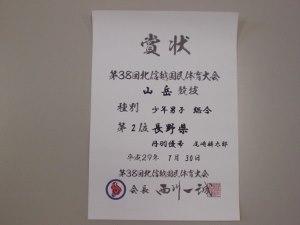 賞状
第38回北信越国民体育大会
山岳競技
種別 少年男子 総合
第2位 長野県
丹羽優希 尾﨑耕太郎
平成29年 7月30日
第38回北信越国民体育大会
会長 西川一誠